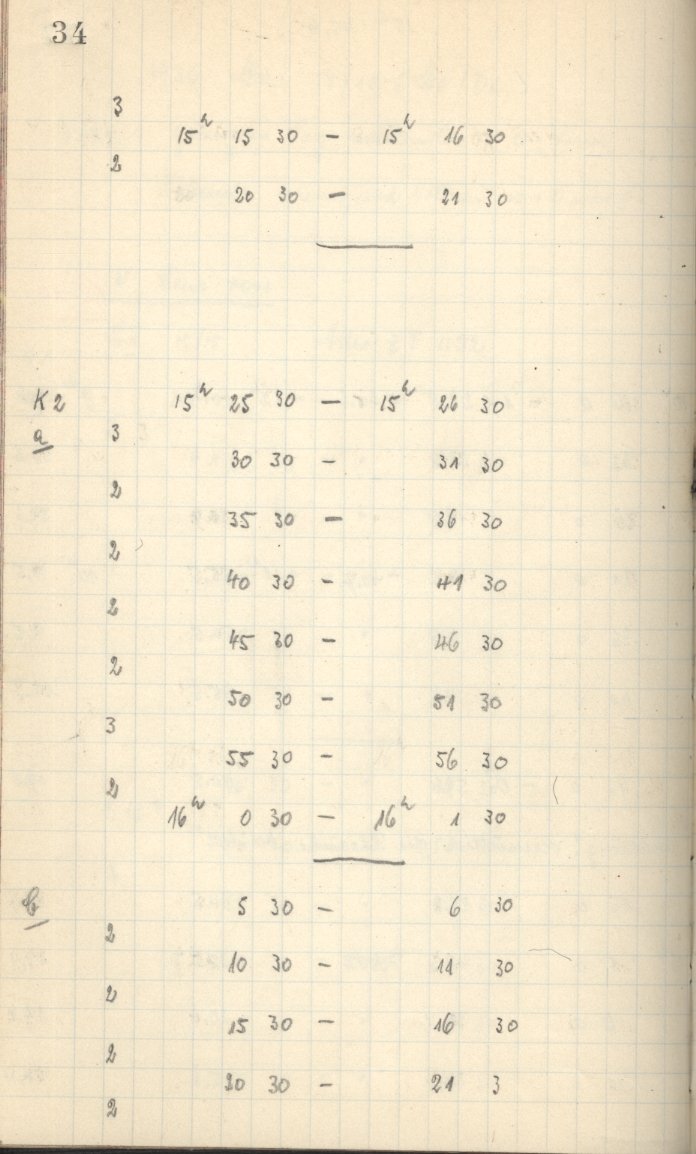 34
3
15h 15 30 – 15h 16 30
2
20 30 – 21 30
K2 15h 25 30 – 15h 26 30
a 3
30 30 – 31 30
2
35 30 – 36 30
2
40 30 – 41 30
2
45 30 – 46 30
2
50 30 – 51 30
3
55 30 – 56 30
2
16h 0 30 – 16h 1 30
b 5 30 – 6 30
2
10 30 – 11 30
2
15 30 – 16 30
2
20 30 – 21 3
2